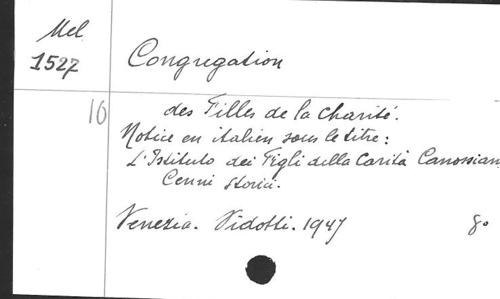 Mel
1527
Congregation
16
des Filles de la Charité.
Notice en italien sous le titre:
L'Istituto dei Figli della Carità Canossian
Cenni storici.
Venezia. Vidotti. 1947
8o